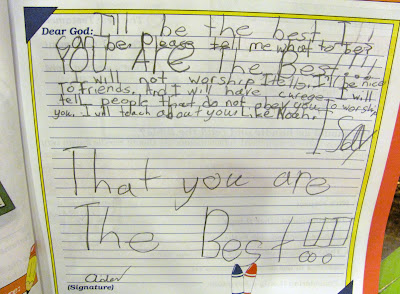 Dear God: I'll be the best I
can be. Please tell me what to be?
YOU ARE The Best!!!!
I will not worship Itells. I'll be nice
To friends. And I will have curege. I will
tell people that do not obey you to worship
you. I will teach about you Like Noah.
I Say
That you are
The Best!!!
(Signature)